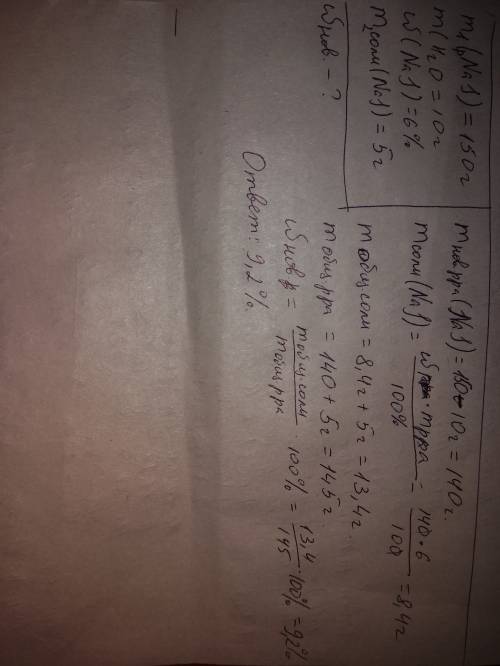 m₁(NaI) = 150г
m(H₂O = 10г
ω(NaI) = 6%
m₂соли(NaI) = 5г
ωнов. - ?
mнов рра(NaI) = 150-10г = 140г.
mсоли(NaI) = ω · mрра / 100% = 140·6 / 100 = 8,4г
mобщ соли = 8,4г + 5г = 13,4г.
mобщ рра = 140 + 5г = 145г.
ωнов р = mобщ. соли / mобщ рра · 100% = 13,4 / 145 · 100% = 9,2%
Ответ: 9,2%.